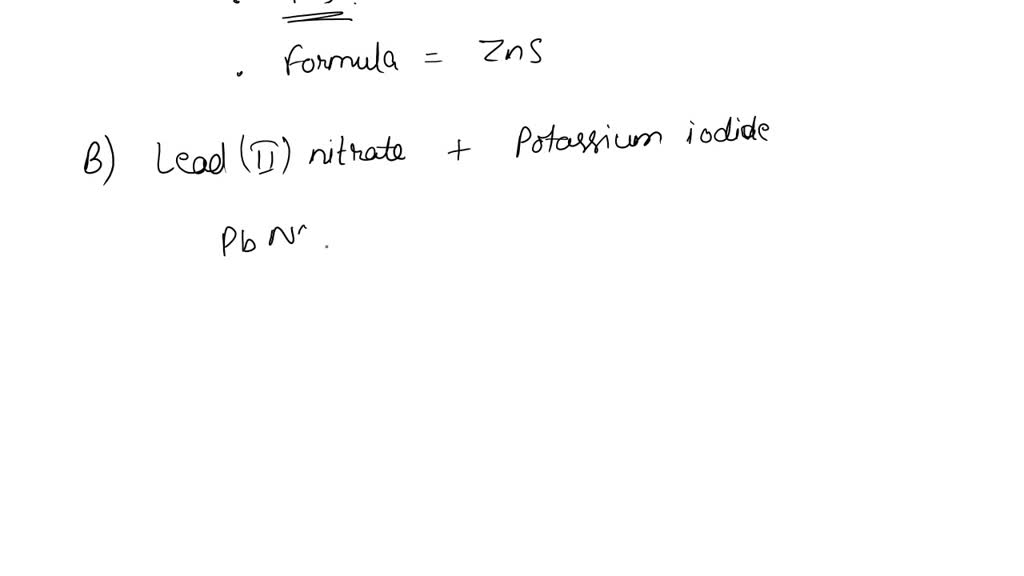 . Formula = ZnS
B) Lead (II) nitrate + Potassium iodide
Pb N